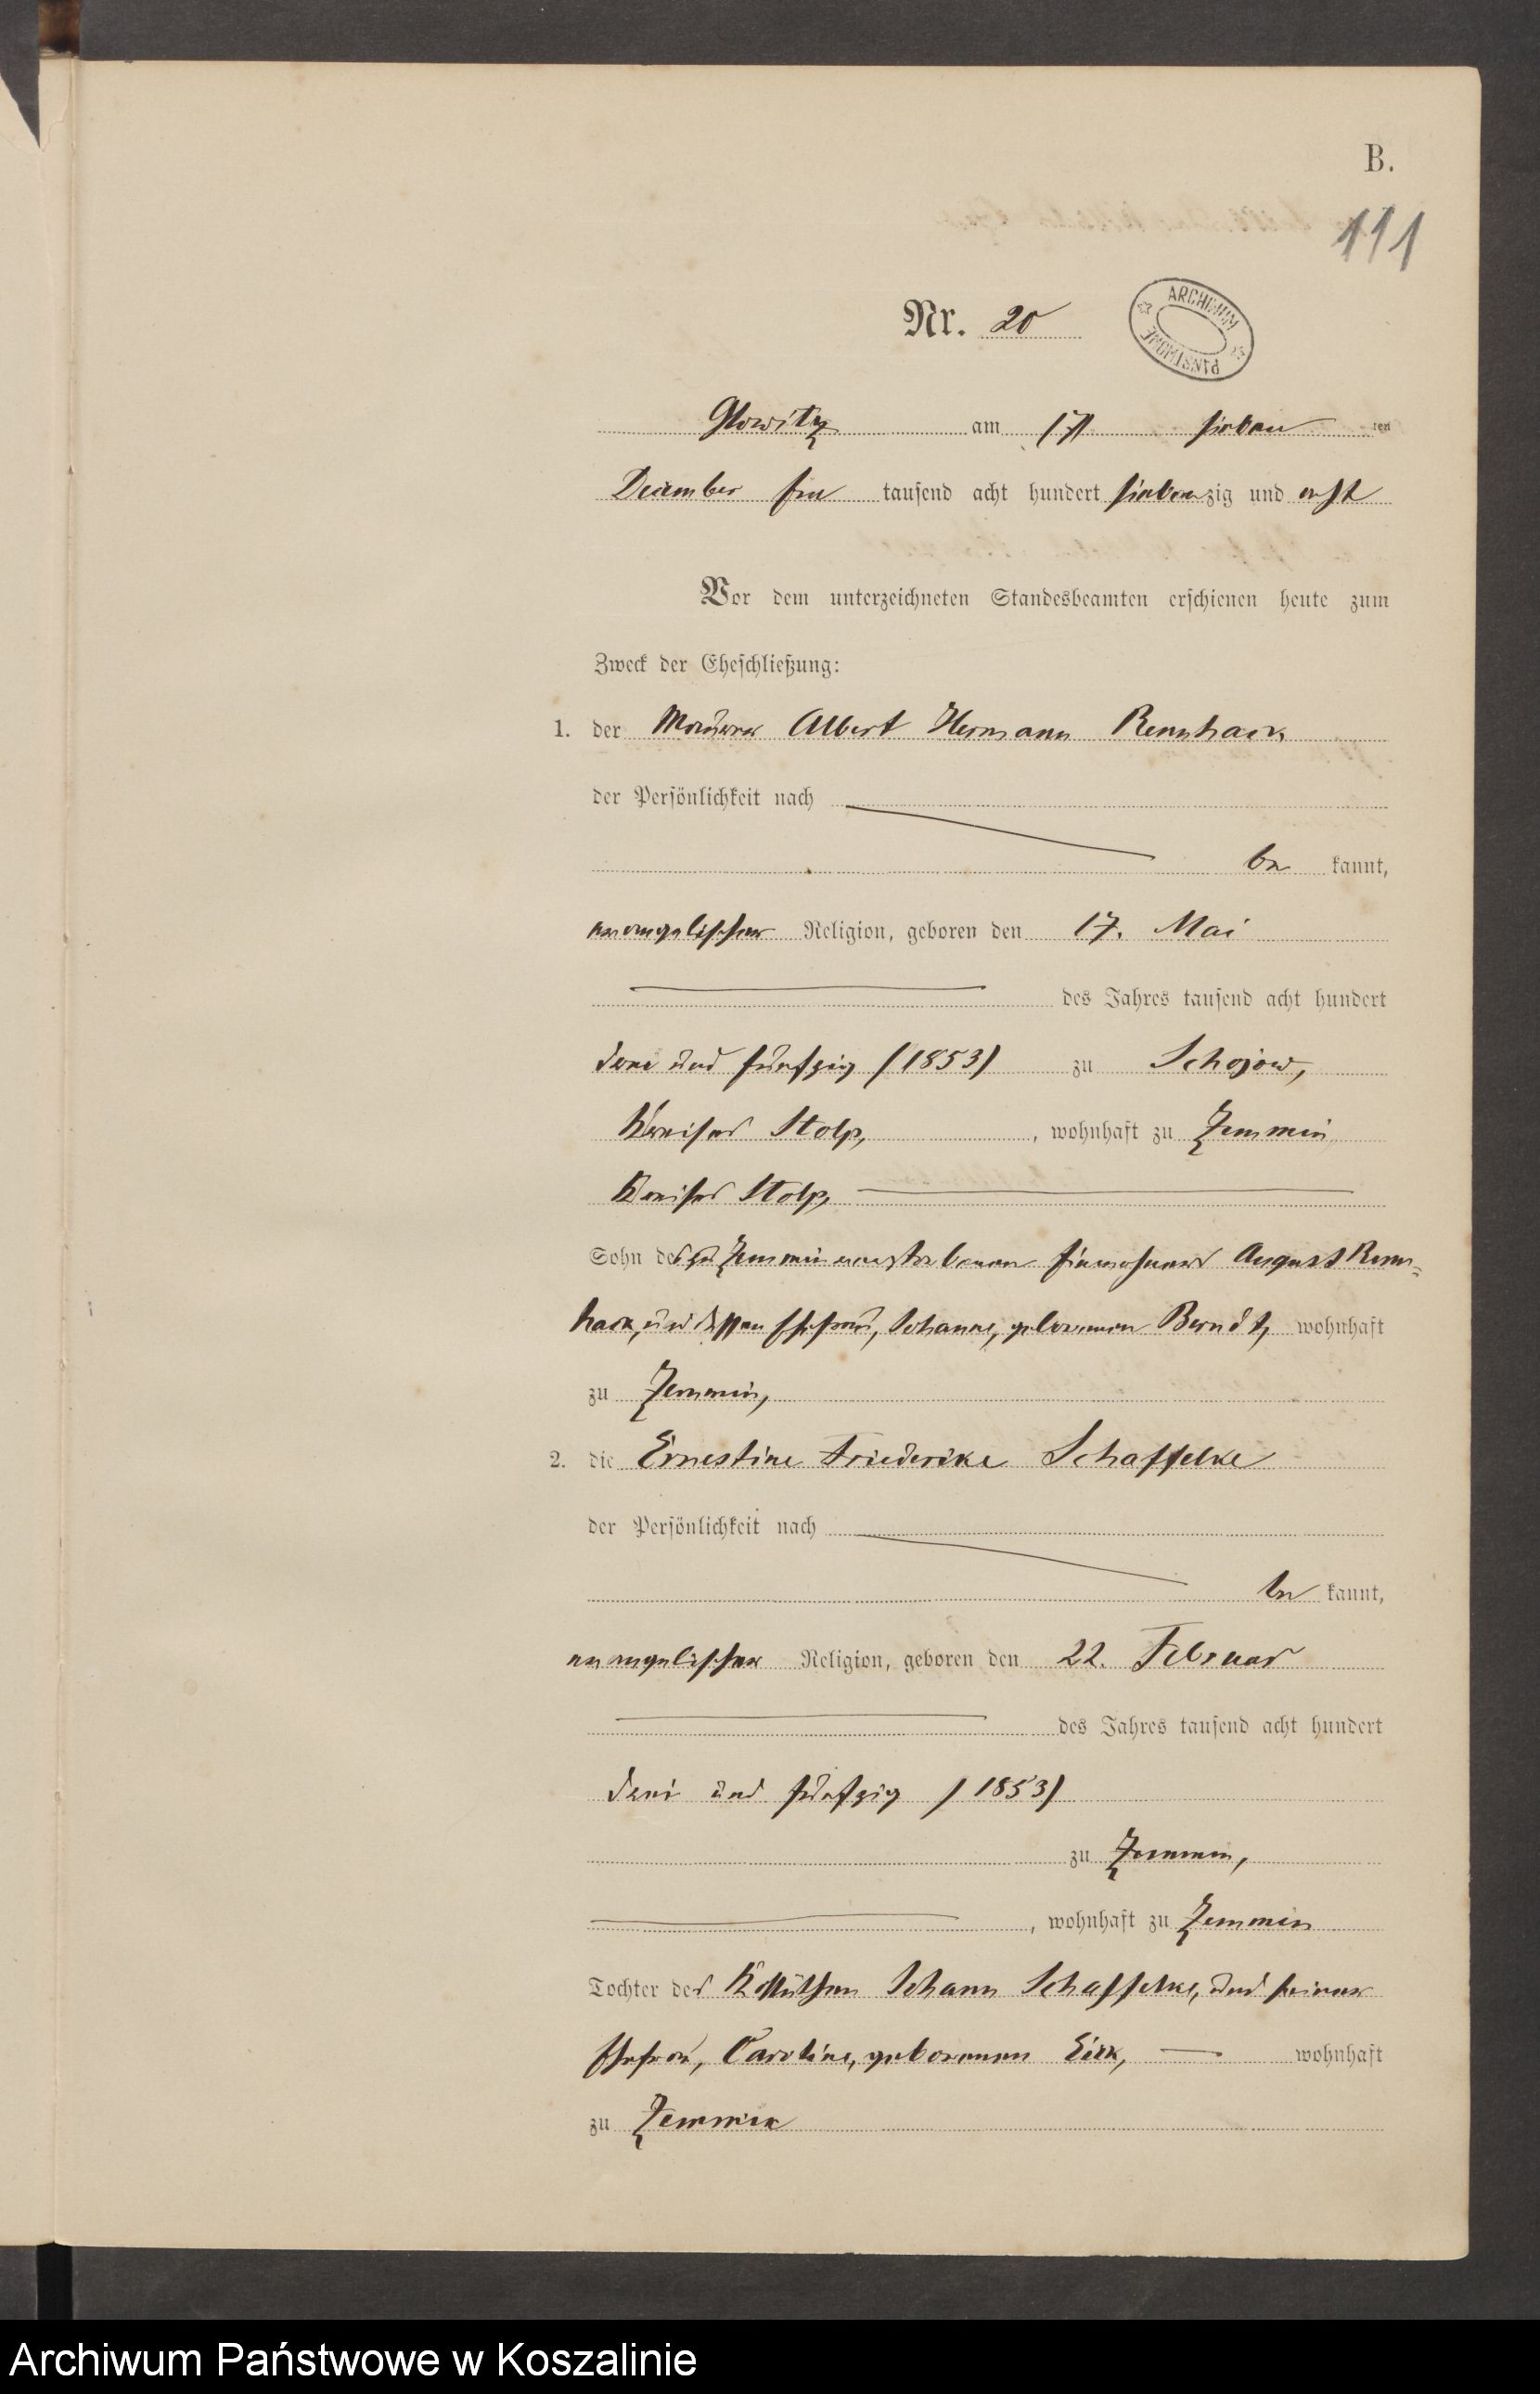 B.
111
Nr. 20
ARCHIWUM PAŃSTWOWE
Glowitz am /7/ sieben ten
December ein tausend acht hundert siebenzig und acht
Vor dem unterzeichneten Standesbeamten erschienen heute zum
Zweck der Eheschließung:
1. der Maurer Albert Hermann Rennhack
der Persönlichkeit nach
be kannt,
evangelischer Religion, geboren den 17. Mai
des Jahres tausend acht hundert
drei und fünfzig /1853/ zu Schojow,
Kreises Stolp, , wohnhaft zu Zemmin
Kreises Stolp,
Sohn des zu Zemmin verstorbenen Einwohners August Renn-
hack, und dessen Ehefrau, Johanne, geborenen Berndt, wohnhaft
zu Zemmin,
2. die Ernestine Friederike Schaffelke
der Persönlichkeit nach
be kannt,
evangelischer Religion, geboren den 22. Februar
des Jahres tausend acht hundert
drei und fünfzig /1853/
zu Zemmin,
, wohnhaft zu Zemmin
Tochter des Johann Schaffelke, und seiner
Ehefrau, Caroline, geborenen Eick, wohnhaft
zu Zemmin
Archiwum Państwowe w Koszalinie